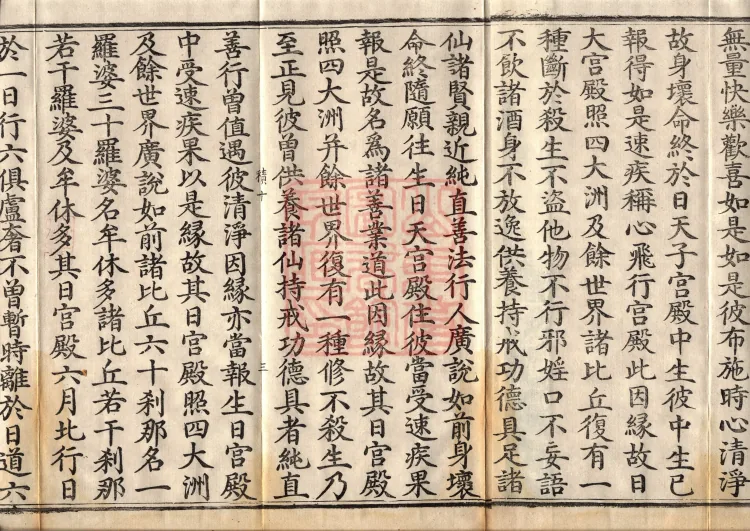 無量快樂歡喜如是如是彼布施時心清淨
故身壞命終於日天子宮殿中生彼中生已
報得如是速疾稱心飛行宮殿此因緣故日
大宮殿照四大洲及餘世界諸比丘復有一
種斷於殺生不盜他物不行邪婬口不妄語
不飲諸酒身不放逸供養持戒功德具足諸
仙諸賢親近純直善法行人廣說如前身壞
命終隨願往生日天宮殿住彼當受速疾果
報是故名為諸善業道此因緣故其日宮殿
照四大洲并餘世界復有一種修不殺生乃
至正見彼曾供養諸仙持戒功德具者純直
積十 三
善行曾值遇彼清淨因緣亦當報生日宮殿
中受速疾果以是緣故其日宮殿照四大洲
及餘世界廣說如前諸比丘六十剎那名一
羅婆三十羅婆名牟休多諸比丘若干剎那
若干羅婆及牟休多其日宮殿六月北行日
於一日行六俱盧奢不曾暫時離於日道六